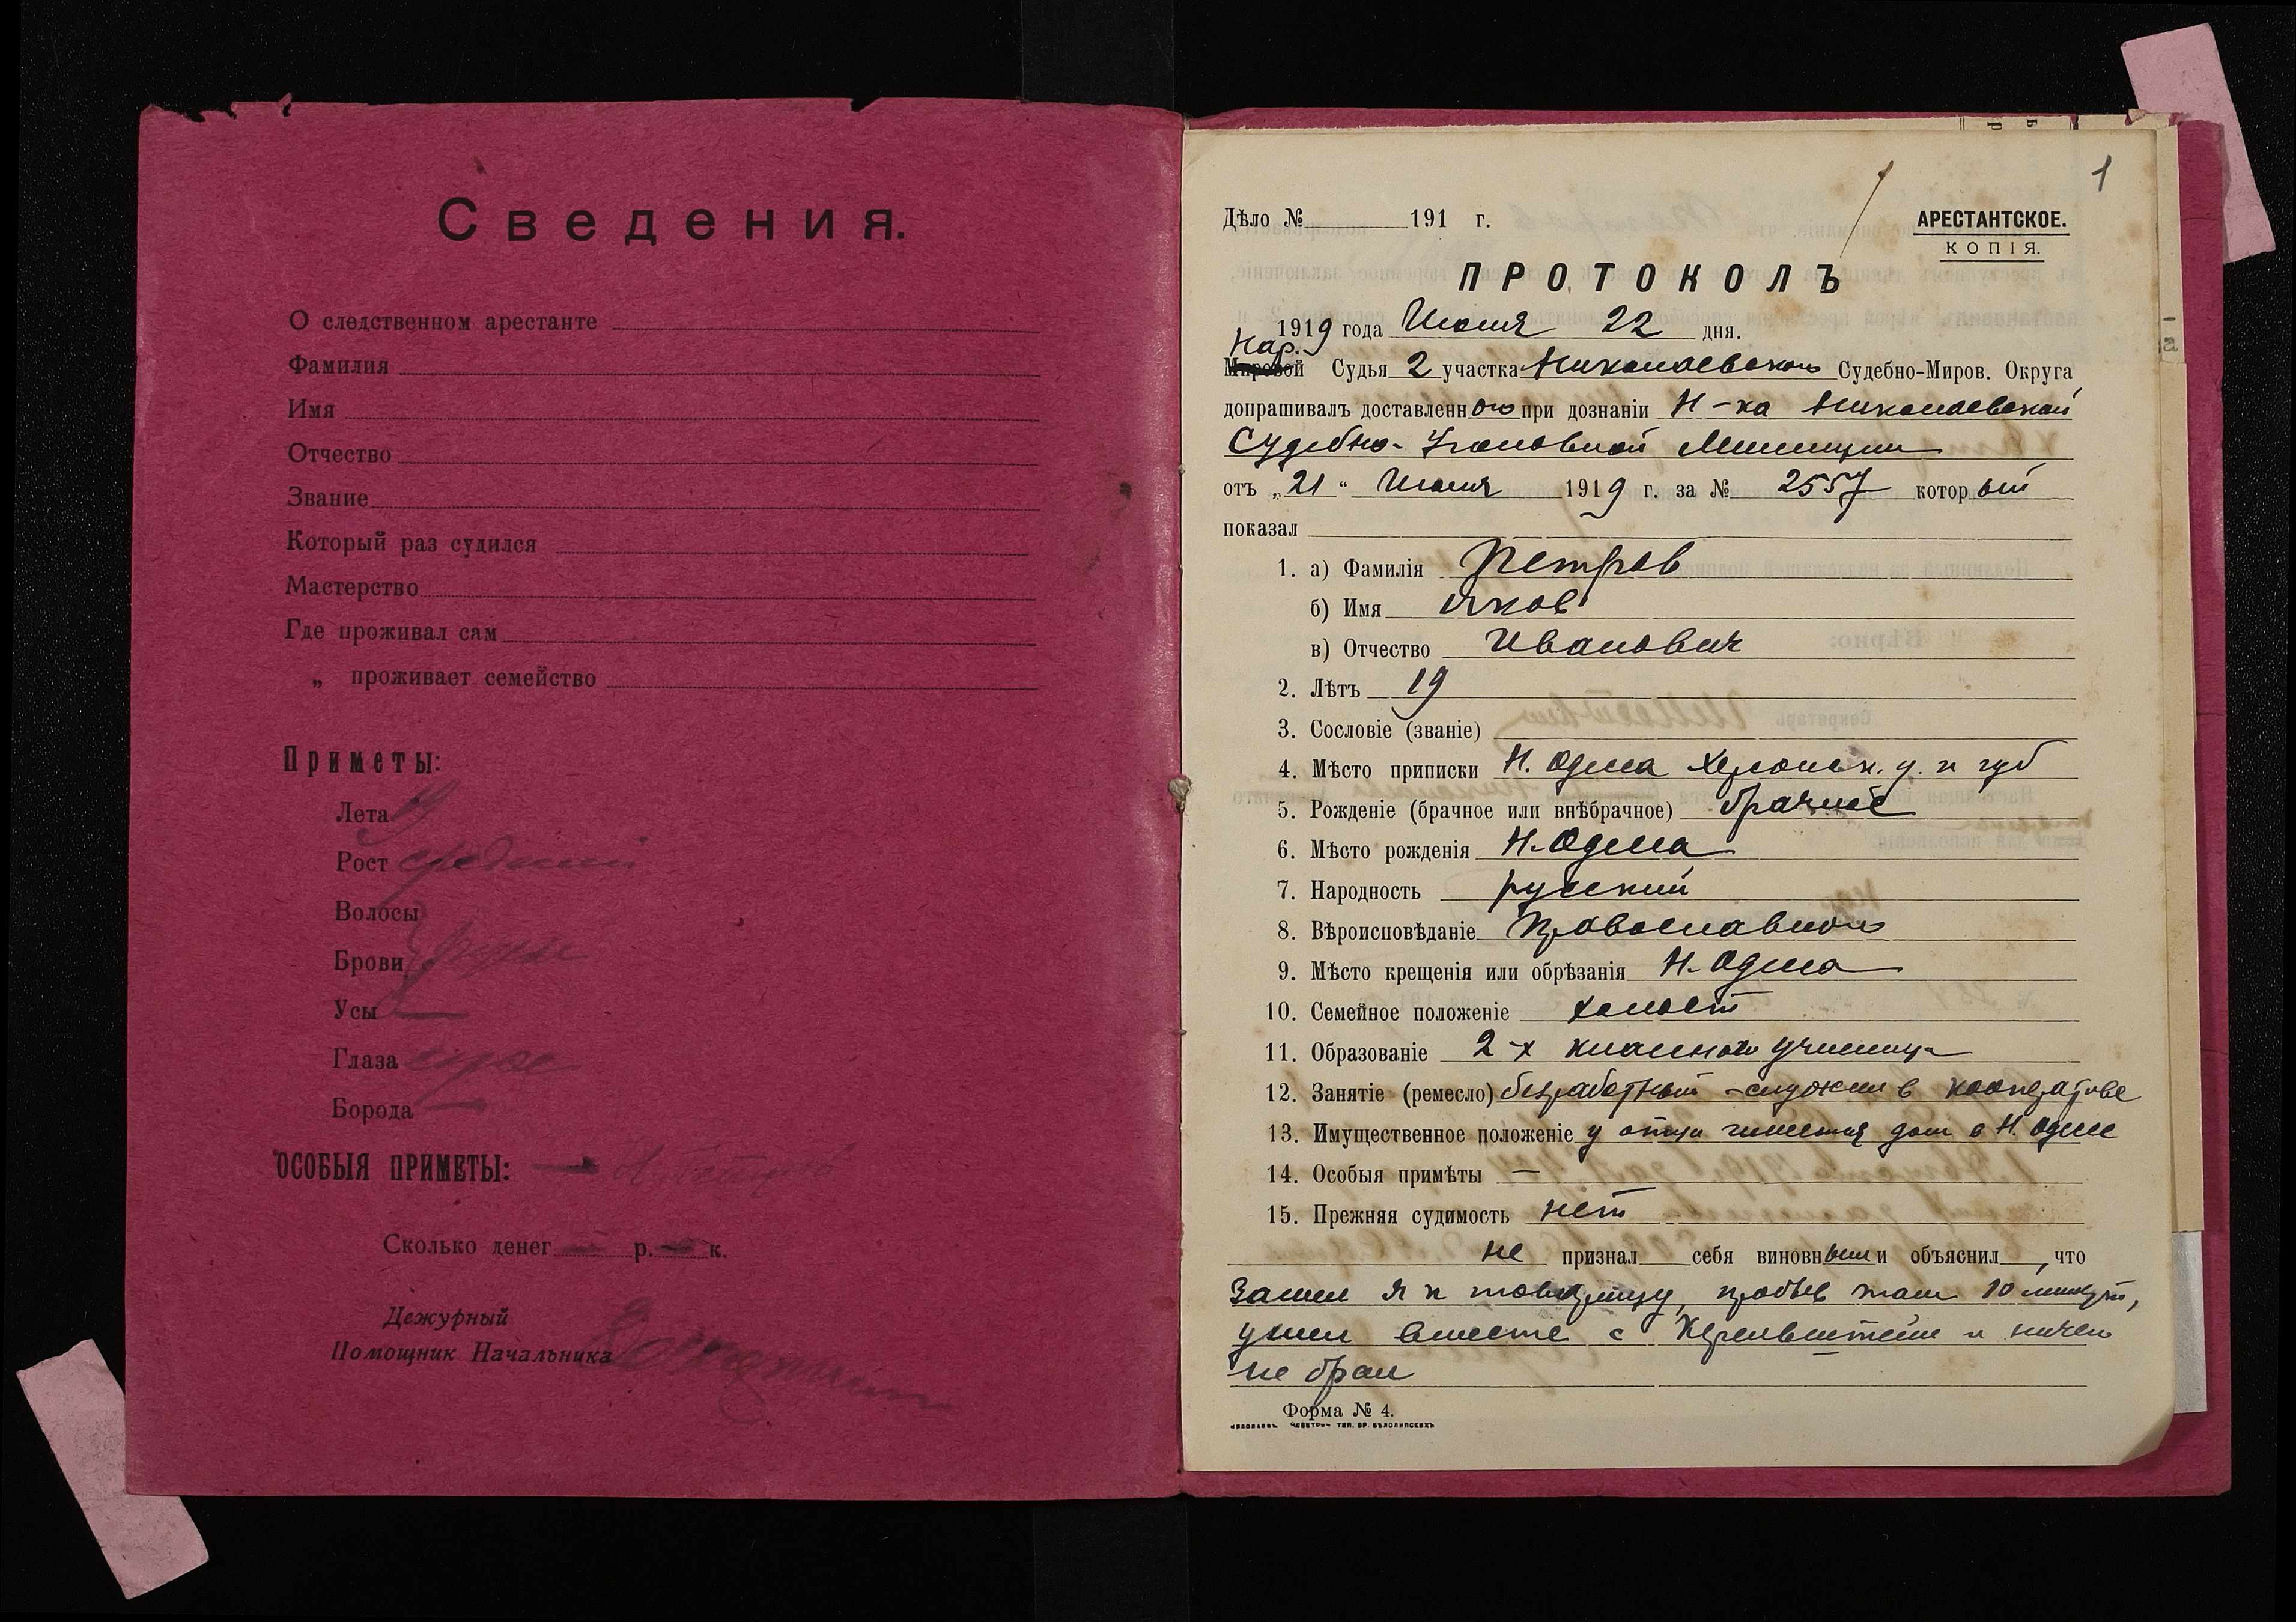 Сведения.
О следственном арестанте
Фамилия
Имя
Отчество
Звание
Который раз судился
Мастерство
Где проживал сам
„ проживает семейство
Приметы:
Лета 19
Рост средний
Волосы
Брови
Усы —
Глаза серые
Борода —
ОСОБЫЯ ПРИМЕТЫ: —
Сколько денег — р. — к.
Дежурный
Помощник Начальника
1
Дѣло № 191 г.
АРЕСТАНТСКОЕ.
КОПІЯ.
ПРОТОКОЛЪ
1919 года Июня 22 дня.
Нар.
Мировой Судья 2 участка Николаевского Судебно-Миров. Округа
допрашивалъ доставленного при дознаніи Н-ка Николаевской
Судебно-Уголовной Милиции
отъ „21“ Июня 1919 г. за № 2557 который
показал
1. а) Фамилія Петров
б) Имя Яков
в) Отчество Иванович
2. Лѣтъ 19
3. Сословіе (званіе)
4. Мѣсто приписки Н. Одесса Херсонск. у. и губ
5. Рожденіе (брачное или внѣбрачное) брачное
6. Мѣсто рожденія Н-Одесса
7. Народность русский
8. Вѣроисповѣданіе Православного
9. Мѣсто крещенія или обрѣзанія Н-Одесса
10. Семейное положеніе холост
11. Образованіе 2-х классного училища
12. Занятіе (ремесло) безработный - служил в кооперативе
13. Имущественное положеніе у отца имеется дом в Н. Одессе
14. Особыя примѣты —
15. Прежняя судимость нет
не признал себя виновным и объяснил, что
Зашел я к товарищу, пробыв там 10 минут,
ушел вместе с и ничего
не брал
Форма № 4.